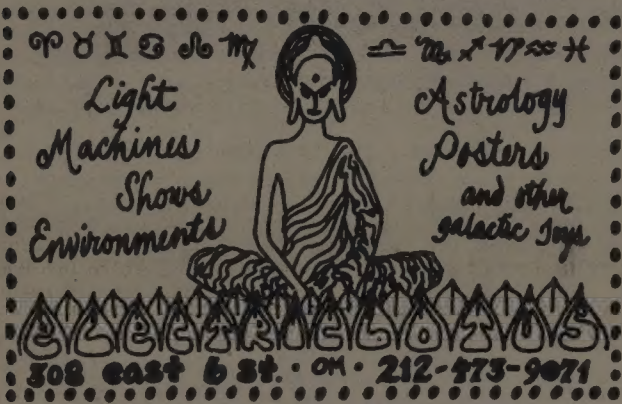 ♈ ♉ ♊ ♋ ♌ ♍ ♎ ♏ ♐ ♑ ♒ ♓
Light
Machines
Shows
Environments
Astrology
Posters
and other
galactic Toys
ELECTRIC LOTUS
308 east 6 st. · OM · 212-473-9071